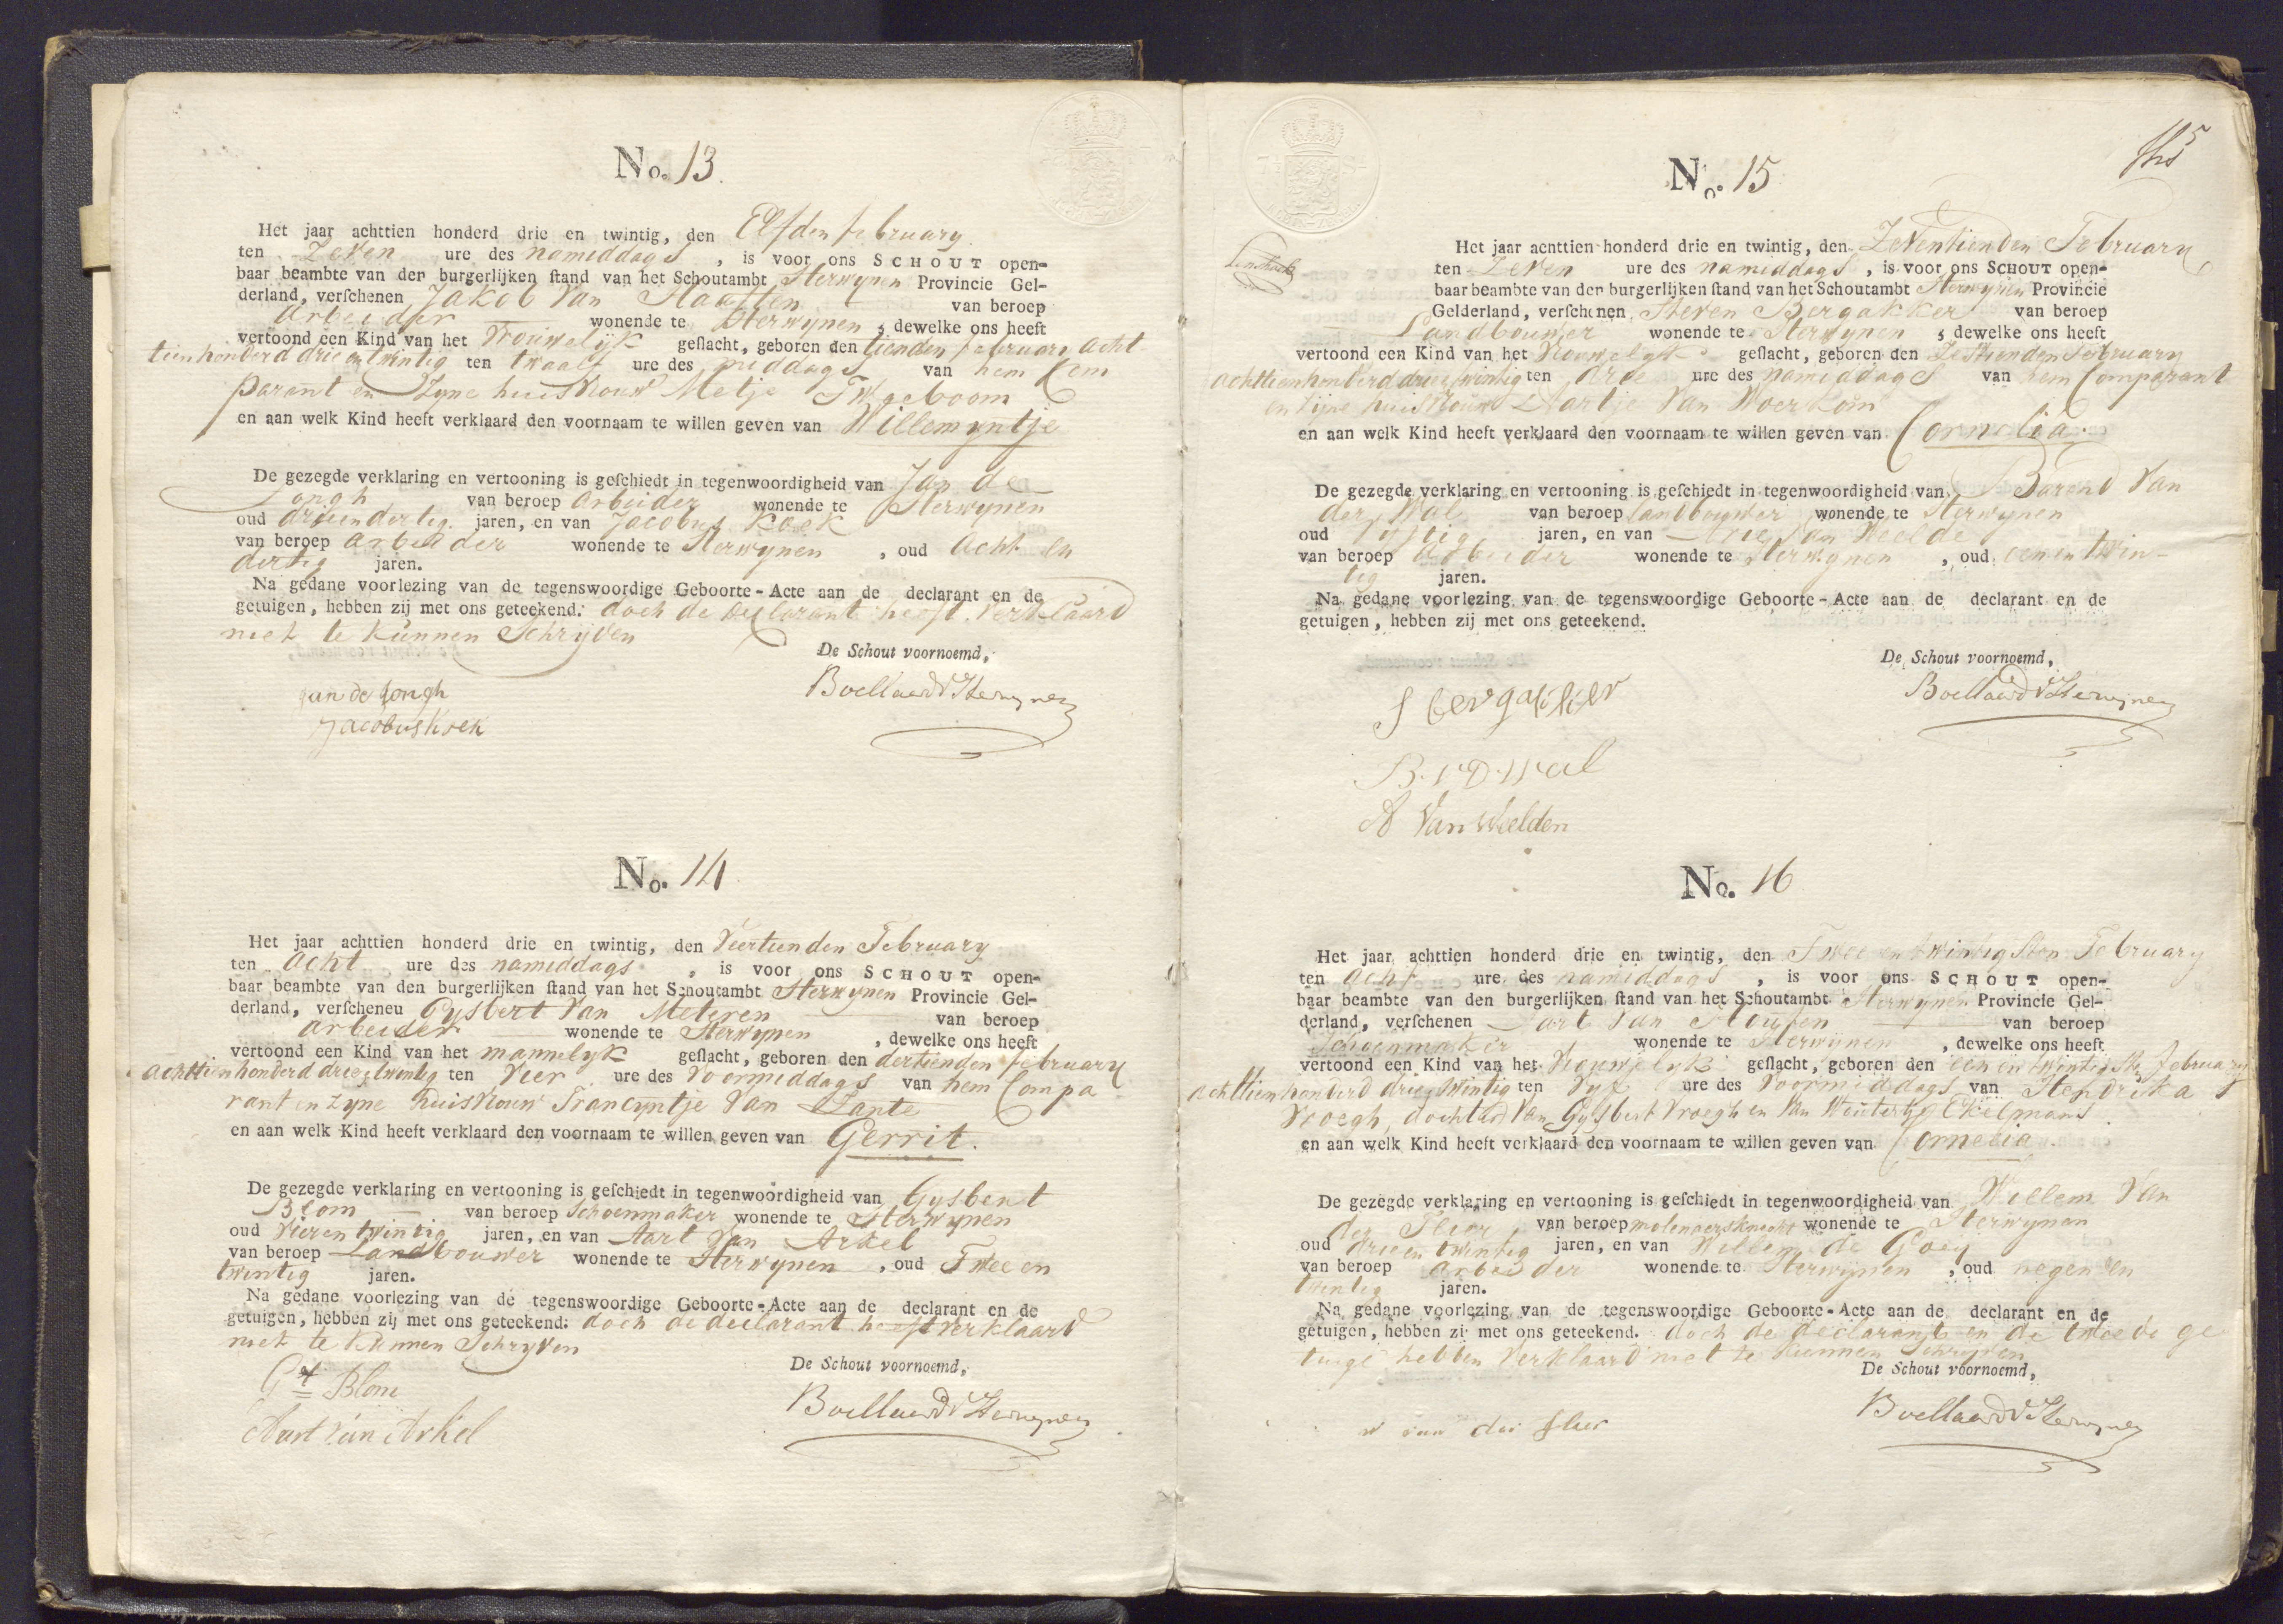 No. 13.
Het jaar achttien honderd drie en twintig, den Elfden february
ten Zeven ure des namiddags, is voor ons SCHOUT open-
baar beambte van den burgerlijken stand van het Schoutambt Herwynen Provincie Gel-
derland, verschenen Jakob Van Haaften van beroep
arbeider wonende te Herwynen, dewelke ons heeft
vertoond een Kind van het Vrouwelijk geslacht, geboren den tienden february acht
tienhonderd drie en twintig ten twaalf ure des middags van hem Com
parant en Zyne huisvrouw Metje
en aan welk Kind heeft verklaard den voornaam te willen geven van Willemyntje
De gezegde verklaring en vertooning is geschiedt in tegenwoordigheid van Jan de
Jongh van beroep arbeider wonende te Herwynen
oud drieendertig jaren, en van Jacobus Koek
van beroep arbeider wonende te Herwynen, oud acht en
dertig jaren.
Na gedane voorlezing van de tegenswoordige Geboorte-Acte aan de declarant en de
getuigen, hebben zij met ons geteekend. doch de declarant heeft verklaard
niet te kunnen Schryven
De Schout voornoemd,
jan de jongh
Boellaard v Herwynen
jacobus koek
No. 14
Het jaar achttien honderd drie en twintig, den Veertienden February
ten acht ure des namiddags, is voor ons SCHOUT open-
baar beambte van den burgerlijken stand van het Schoutambt Herwynen Provincie Gel-
derland, verscheneu Gysbert Van Meteren van beroep
arbeider wonende te Herwynen, dewelke ons heeft
vertoond een Kind van het mannelyk geslacht, geboren den dertienden february
achttienhonderd drie en twintig ten Vier ure des Voormiddags van hem Compa
rant en Zyne huisvrouw Francyntje Van Zante
en aan welk Kind heeft verklaard den voornaam te willen geven van Gerrit.
De gezegde verklaring en vertooning is geschiedt in tegenwoordigheid van Gysbert
Blom van beroep Schoenmaker wonende te Herwynen
oud Vieren twintig jaren, en van Aart Van Arkel
van beroep Landbouwer wonende te Herwynen, oud Twee en
twintig jaren.
Na gedane voorlezing van de tegenswoordige Geboorte-Acte aan de declarant en de
getuigen, hebben zij met ons geteekend: doch de declarant heeft verklaard
niet te kunnen Schryven
De Schout voornoemd,
Gt Blom
Boellaard v Herwynen
Aart van Arkel
No. 15
Het jaar achttien honderd drie en twintig, den Zeventienden February
ten Zeven ure des namiddags, is voor ons SCHOUT open-
baar beambte van den burgerlijken stand van het Schoutambt Herwynen Provincie
Gelderland, verschenen Steven Bergakker van beroep
Landbouwer wonende te Herwynen, dewelke ons heeft
vertoond een Kind van het Vrouwelyk geslacht, geboren den Zestienden February
achttienhonderd drie en twintig ten drie ure des namiddags van hem Comparant
en Zijne huisvrouw Aartje Van Woerkom
en aan welk Kind heeft verklaard den voornaam te willen geven van Cornelia.
De gezegde verklaring en vertooning is geschiedt in tegenwoordigheid van Barend Van
der Wal van beroep landbouwer wonende te Herwynen
oud Vyftig jaren, en van Arie Van Weelde
van beroep Arbeider wonende te Herwynen, oud eenen twin-
tig jaren.
Na gedane voorlezing van de tegenswoordige Geboorte-Acte aan de declarant en de
getuigen, hebben zij met ons geteekend.
De Schout voornoemd,
S bergakker
Boellaard v Herwynen
B. V D. Wal
A Van Weelden
No. 16
Het jaar achttien honderd drie en twintig, den Twee en twintigsten February
ten acht ure des namiddags, is voor ons SCHOUT open-
baar beambte van den burgerlijken stand van het Schoutambt Herwynen Provincie Gel-
derland, verschenen Aart Van Houten van beroep
Schoenmaker wonende te Herwynen, dewelke ons heeft
vertoond een Kind van het Vrouwelyk geslacht, geboren den een en twintigste February
achttienhonderd drie en twintig ten Vyf ure des Voormiddags van Hendrika
Vroegh, dochter Van Gysbert Vroegh en Van Woutertje Ekelmans
en aan welk Kind heeft verklaard den voornaam te willen geven van Cornelia.
De gezegde verklaring en vertooning is geschiedt in tegenwoordigheid van Willem Van
der Flier van beroep molenaersknecht wonende te Herwynen
oud drie en twintig jaren, en van Willem de Goey
van beroep arbeider wonende te Herwynen, oud negen en
twintig jaren.
Na gedane voorlezing van de tegenswoordige Geboorte-Acte aan de declarant en de
getuigen, hebben zij met ons geteekend. doch de declarant en de tweede ge
tuige hebben Verklaard niet te kunnen Schryven
De Schout voornoemd,
Boellaard v Herwynen
w van der flier